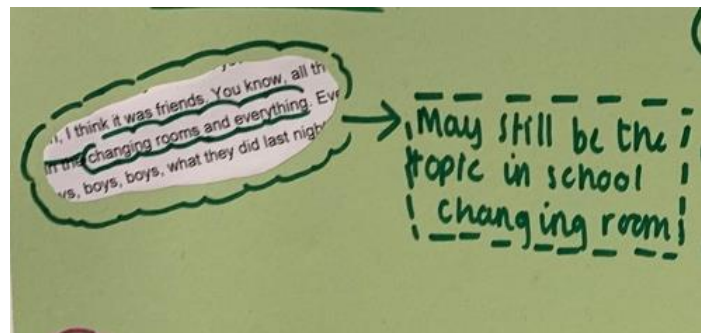 I think it was friends. You know, all th
in the changing rooms and everything. Eve
ys, boys, boys, what they did last nigh
May still be the
topic in school
changing room